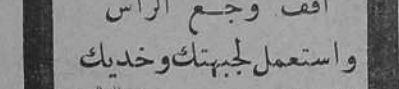 اقف وجع الراس
واستعمل لجبهتك وخديك